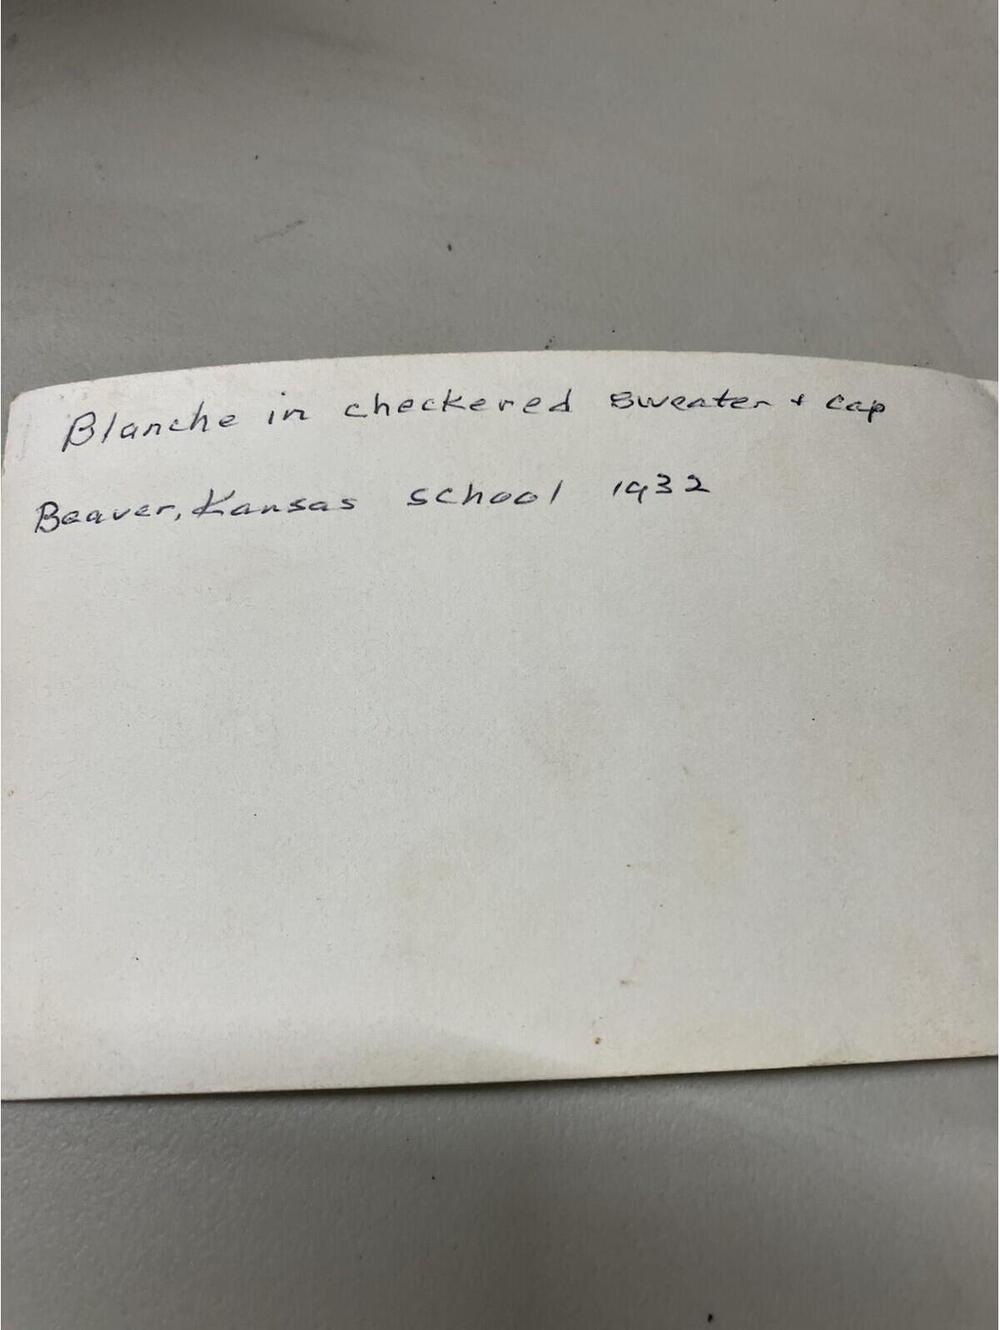 Blanche in checkered sweater + cap
Beaver, Kansas school 1932